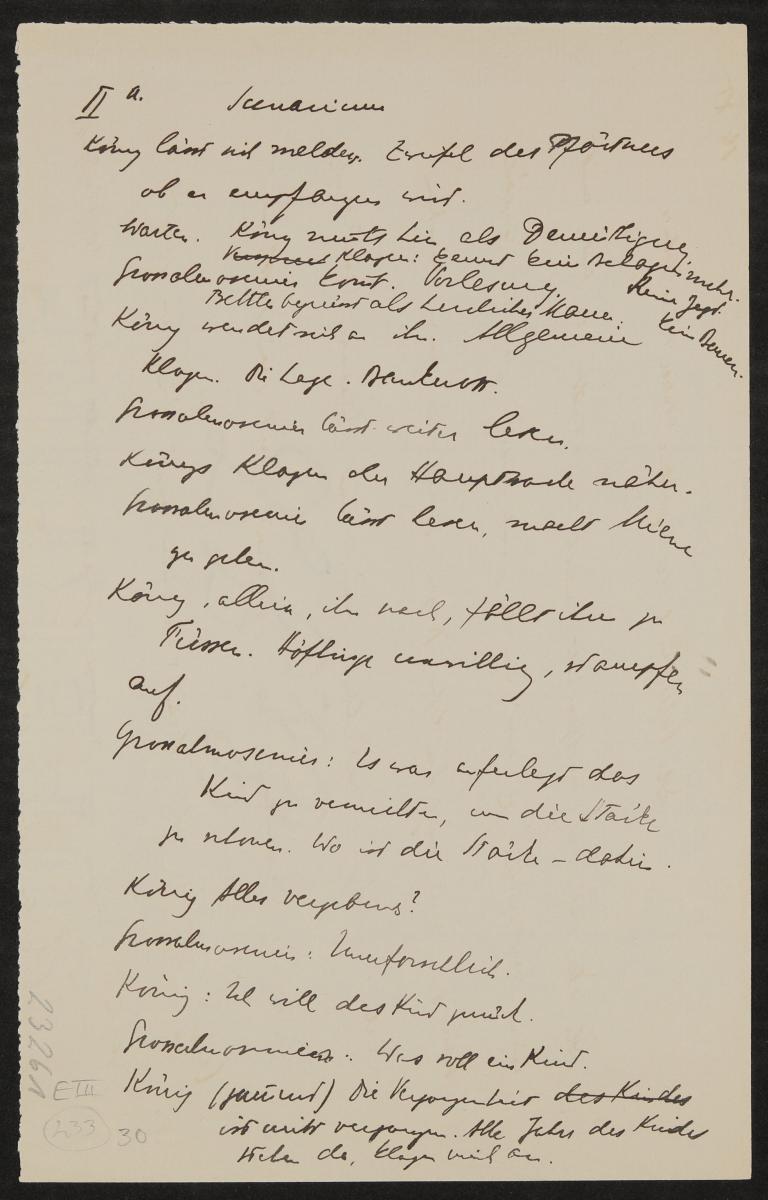 II a. Scenarium
König lässt sich melden. Zweifel des Pförtners
ob er empfangen wird.
Warten. König nichts hin als Demütigung
Klagen: kennt kein Gelage mehr.
Keine Jagd.
Grossalmosenier kommt. Vorlesung.
Bettler begrüsst als herrlichen Mann.
König wendet sich an ihn. Allgemein
Klagen. Die Lage. Bankrott.
Grossalmosenier lässt weiter lesen.
Königs Klagen der Hauptsache näher.
Grossalmosenier lässt lesen, macht Miene
zu gehen.
König, allein, ihm nach, fällt ihm zu
Füssen. Höflinge unwillig, stampfen
auf.
Grossalmosenier: Es war auferlegt das
Kind zu vernichten, um die Stärke
zu schonen. Wo ist die Stärke – dahin.
König Alles vergebens?
Grossalmosenier: Unerforschlich.
König: Ich will das Kind zurück.
Grossalmosenier: Was soll ein Kind.
König ( ) Die Vergangenheit des Kindes
ist nicht vergangen. Alle Jahre des Kindes
stehen da, klagen mich an.
2326A
E III
233
30